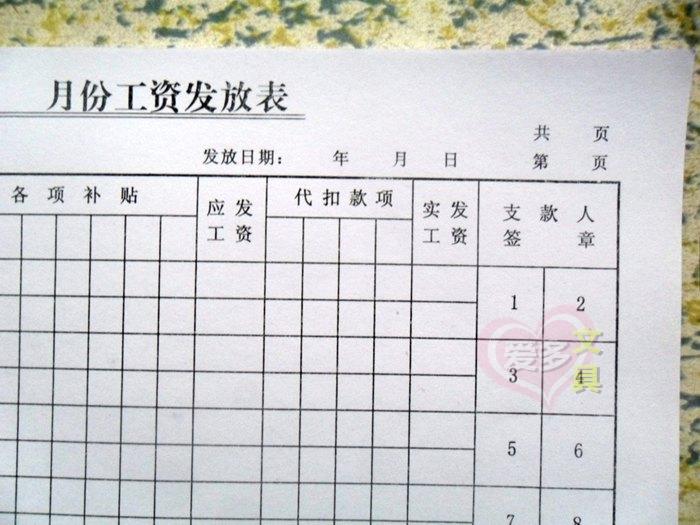 月份工资发放表
共 页
发放日期： 年 月 日 第 页
各项补贴 应发工资 代扣款项 实发工资 支款人签章
1 2
3 4
5 6
7 8
爱多文具